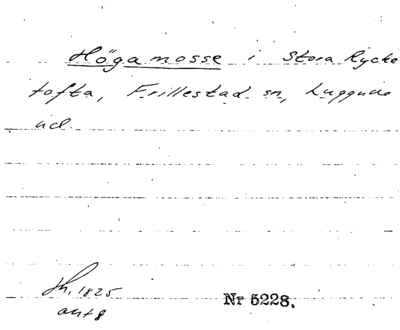 Högamosse i Stora Rycke
tofta, Frillestad sn, Luggude
hd.
Jh. 1825
akt 8
Nr 5228.